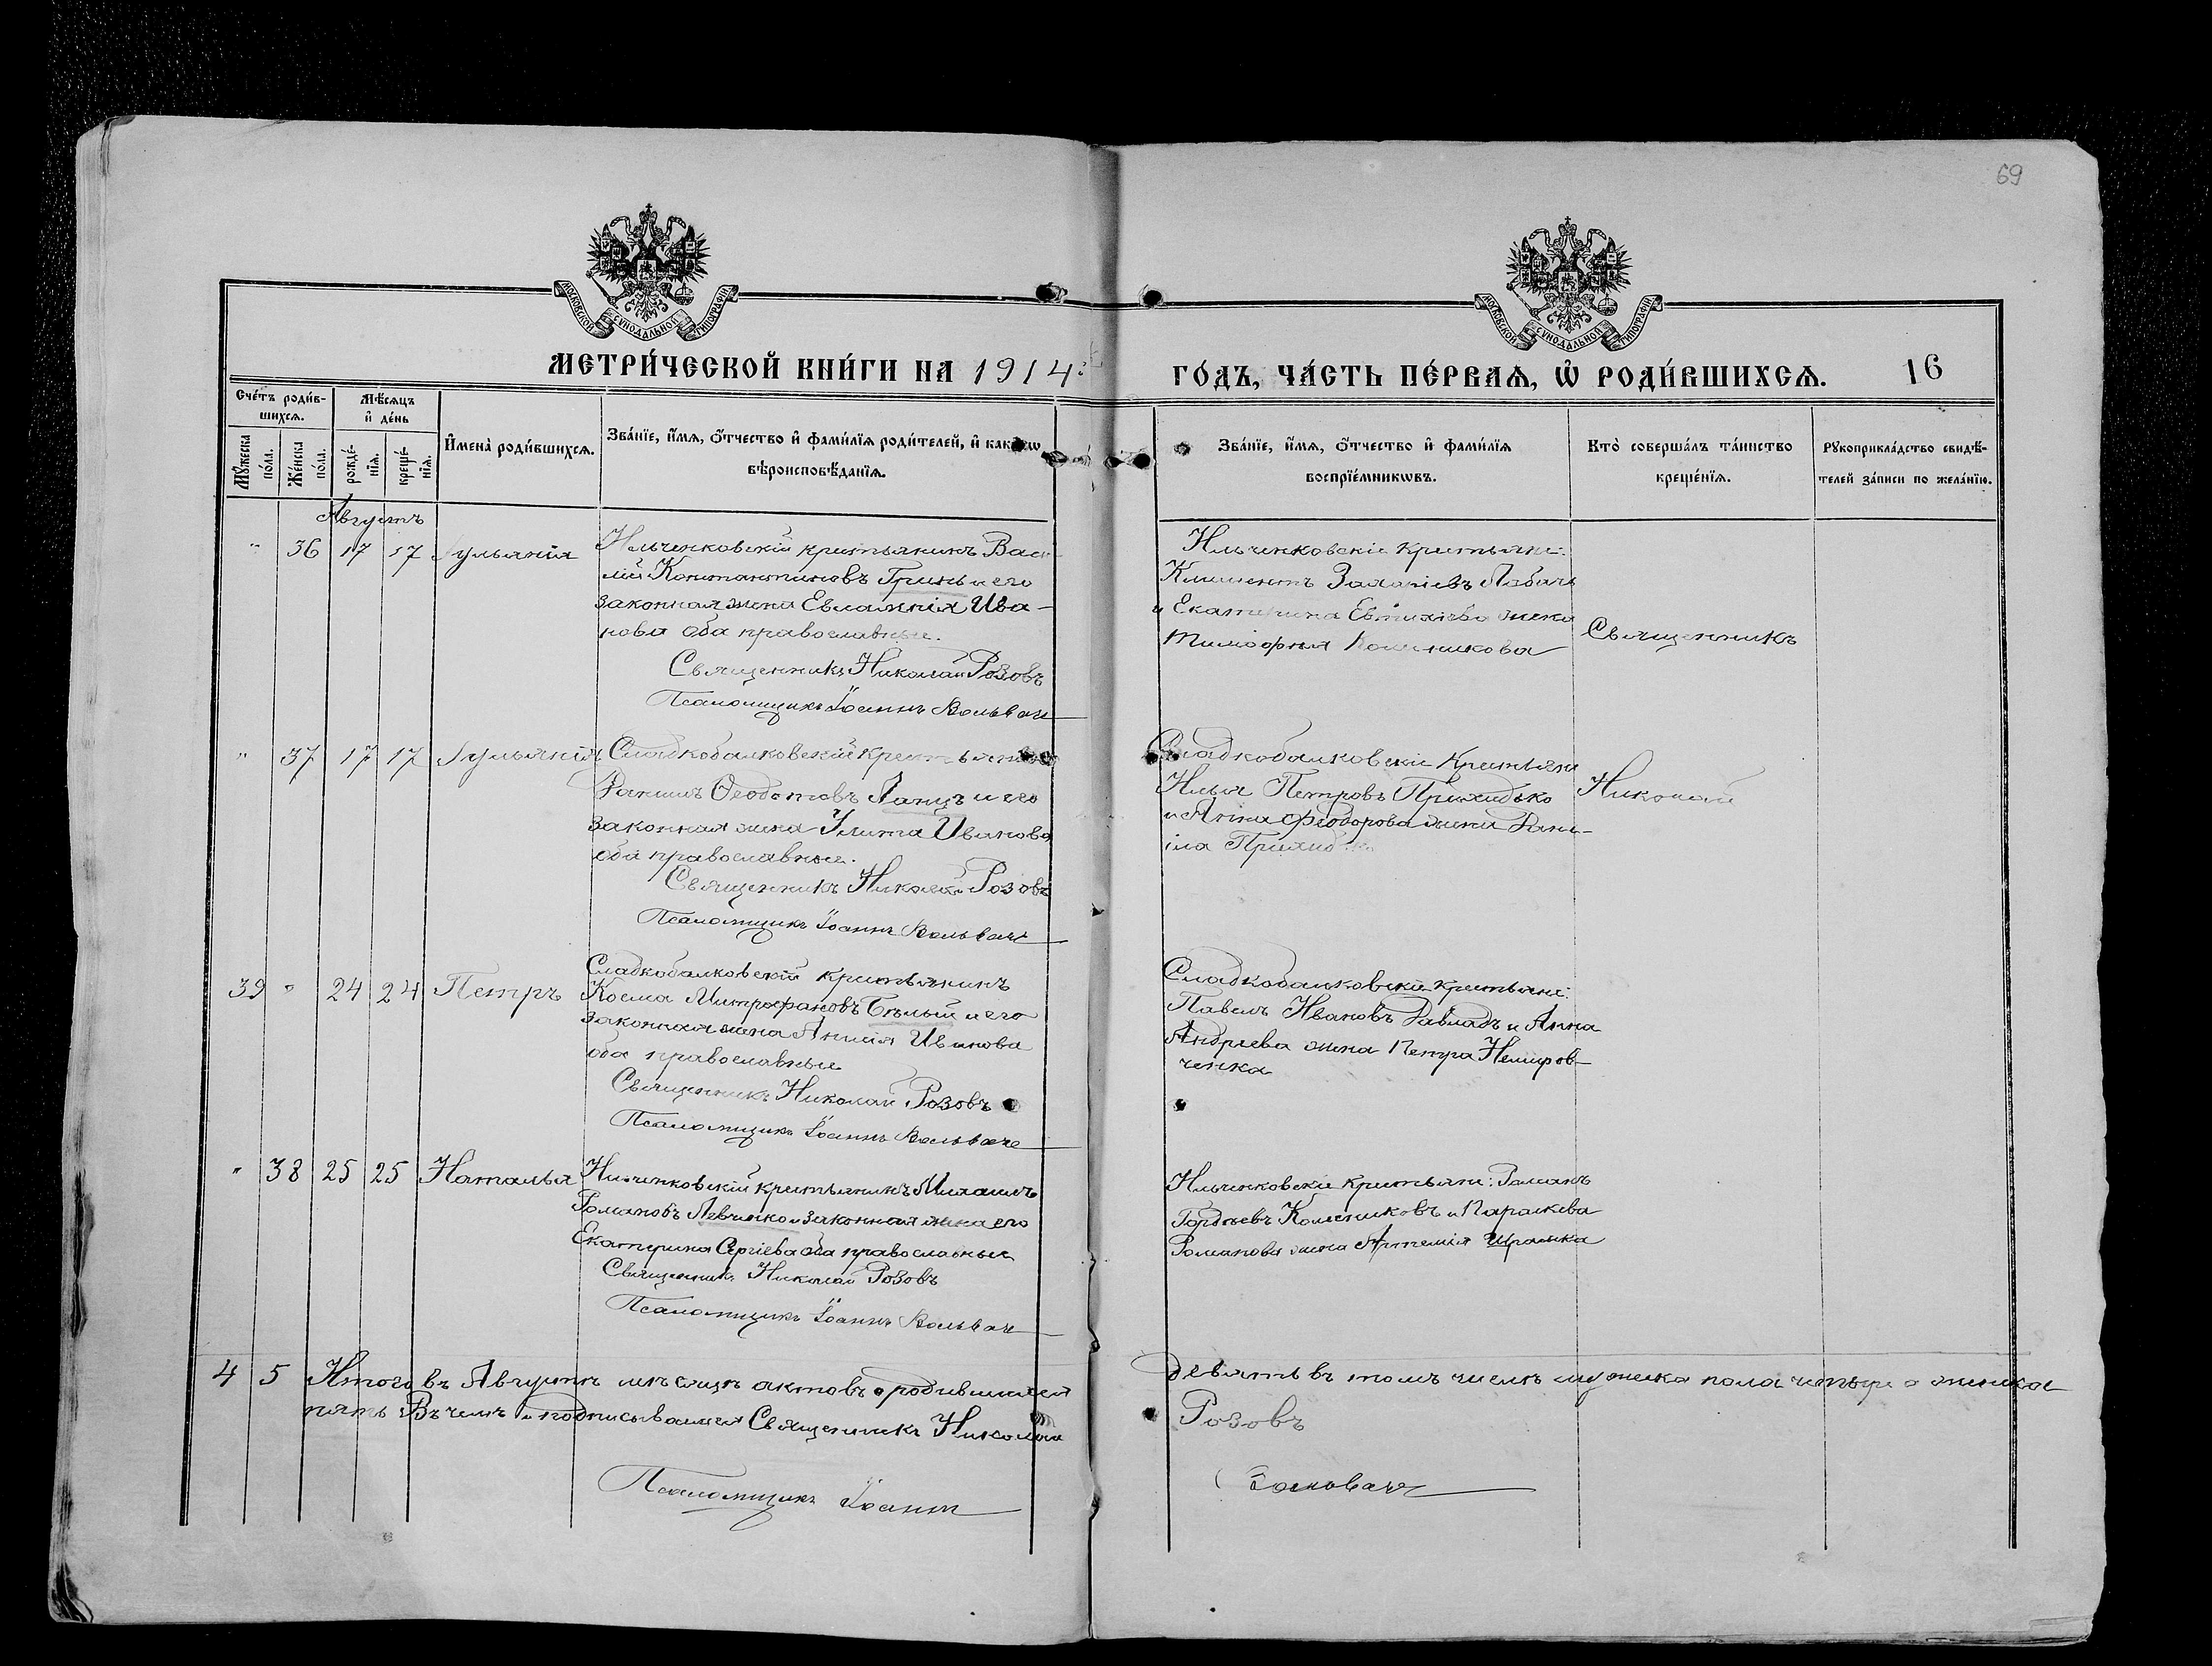 69
МОСКОВСКОЙ СѴНОДАЛЬНОЙ ТИПОГРАФІИ
МОСКОВСКОЙ СѴНОДАЛЬНОЙ ТИПОГРАФІИ
МЕТРИ́ЧЕСКОЙ КНИ́ГИ НА 1914
ГО́ДЪ, ЧА́СТЬ ПЕ́РВАѦ, Ѡ҆ РОДИ́ВШИХСѦ.
16
Сче́тъ роди́в-
шихсѧ.
Мѣ́сѧцъ
и҆ де́нь
Мꙋ́жеска
по́ла.
Же́нска
по́ла.
рожде́-
нїѧ.
креще́-
нїѧ.
И҆мена̀ роди́вшихсѧ.
Зва́нїе, и҆́мѧ, ѻ҆́тчество и҆ фами́лїѧ роди́телей, и҆ како́гѡ
вѣроисповѣ́данїѧ.
Зва́нїе, и҆́мѧ, ѻ҆́тчество и҆ фами́лїѧ
воспрїе́мникѡвъ.
Кто̀ соверша́лъ та́инство
креще́нїѧ.
Рꙋкоприкла́дство свидѣ́-
телей за́писи по жела́нїю.
Августъ
" 36 17 17 Іульянія
Ильченковскій крестьянинъ Васи
лій Константиновъ Гринь и его
законная жена Евлампія Ива-
нова оба православные.
Священникъ Николай Розовъ
Псаломщикъ Іоаннъ Вольвачъ
Ильченковскіе крестьяне:
Климентъ Захаріевъ Лабачъ
и Екатерина Евтихіева жена
Тимофея Колесникова
Священникъ
" 37 17 17 Іульянія
Сладкобалковскій крестьянинъ
Даниилъ Ѳеодотовъ и его
законная жена Улита Иванова
оба православные.
Священникъ Николай Розовъ
Псаломщикъ Іоаннъ Вольвачъ
Сладкобалковскіе крестьяне
Илья Петровъ Прихидько
и Анна Феодорова жена Дани-
іла
Николай
39 " 24 24 Петръ
Сладкобалковскій крестьянинъ
Косма Митрофановъ Бѣлый и его
законная жена Анисія Иванова
оба православные
Священникъ Николай Розовъ
Псаломщикъ Іоаннъ Вольвачъ
Сладкобалковскіе крестьяне:
Павелъ Ивановъ и Анна
Андреева жена Петра Немиров-
ченка
" 38 25 25 Наталья
Ильченковскій крестьянинъ Михаилъ
Романовъ Левченко и законная жена его
Екатерина Сергіева оба православные
Священникъ Николай Розовъ
Псаломщикъ Іоаннъ Вольвачъ
Ильченковскіе крестьяне: Романъ
Гордѣевъ Колесниковъ и Параскева
Романова жена Артемія Шрамка
4 5 Итого въ Августѣ мѣсяцѣ актовъ о родившихся
девять въ томъ числѣ мужеска пола четыре а женска
пять Въ чемъ и подписываемся Священникъ Николай
Розовъ
Псаломщикъ Іоаннъ
Вольвачъ